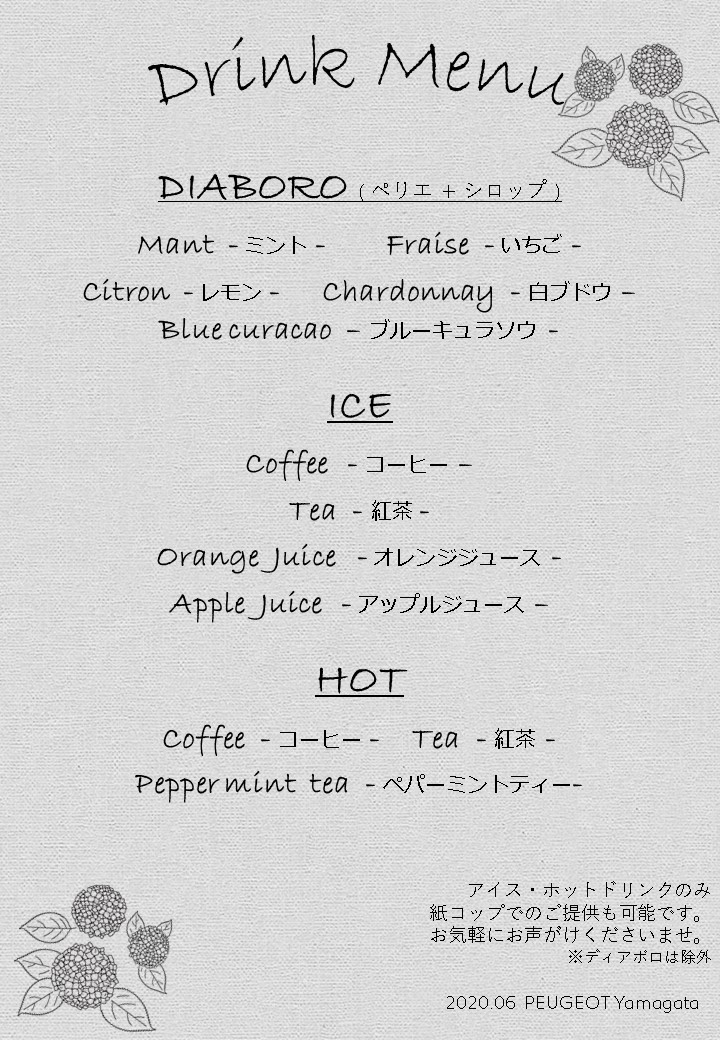 Drink Menu
DIABORO ( ペリエ + シロップ )
Mant - ミント - Fraise - いちご -
Citron - レモン - Chardonnay - 白ブドウ -
Blue curacao - ブルーキュラソウ -
ICE
Coffee - コーヒー -
Tea - 紅茶 -
Orange Juice - オレンジジュース -
Apple Juice - アップルジュース -
HOT
Coffee - コーヒー - Tea - 紅茶 -
Pepper mint tea - ペパーミントティー-
アイス・ホットドリンクのみ
紙コップでのご提供も可能です。
お気軽にお声がけくださいませ。
※ディアボロは除外
2020.06 PEUGEOT Yamagata